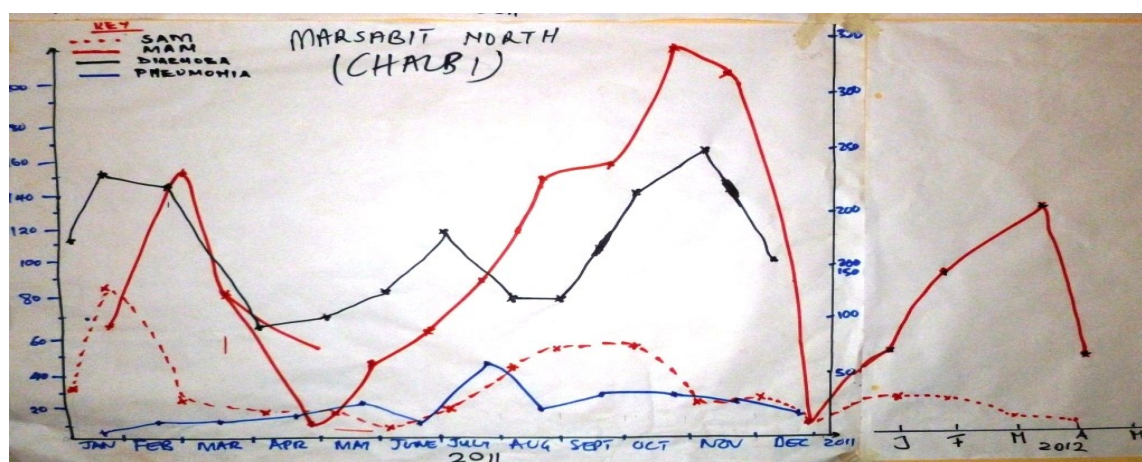 KEY
SAM
MAM
DIARHOEA
PNEUMONIA
MARSABIT NORTH
(CHALBI)
80
60
140
120
100
80
60
40
20
350
300
250
200
200
150
100
50
JAN FEB MAR APR MAY JUNE JULY AUG SEPT OCT NOV DEC 2011
2011
J F M A M
2012